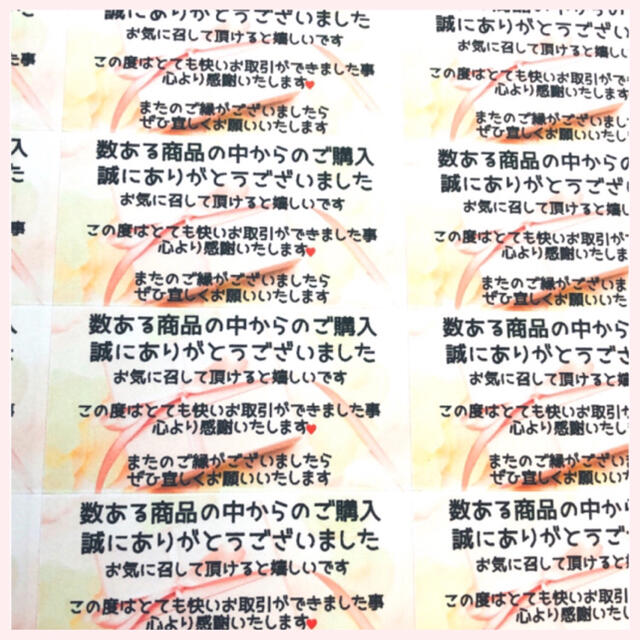 誠にありがとうございました
お気に召して頂けると嬉しいです
この度はとても快いお取引ができました事
心より感謝いたします♥
またのご縁がございましたら
ぜひ宜しくお願いいたします
数ある商品の中からのご購入
誠にありがとうございました
お気に召して頂けると嬉しいです
この度はとても快いお取引ができました事
心より感謝いたします♥
またのご縁がございましたら
ぜひ宜しくお願いいたします
数ある商品の中からのご購入
誠にありがとうございました
お気に召して頂けると嬉しいです
この度はとても快いお取引ができました事
心より感謝いたします♥
またのご縁がございましたら
ぜひ宜しくお願いいたします
数ある商品の中からのご購入
誠にありがとうございました
お気に召して頂けると嬉しいです
この度はとても快いお取引ができました事
心より感謝いたします♥
誠にありがとうござい
お気に召して頂けると嬉し
この度はとても快いお取引が
心より感謝いたします
またのご縁がございま
ぜひ宜しくお願いいた
数ある商品の中からの
誠にありがとうござい
お気に召して頂けると嬉
この度はとても快いお取引が
心より感謝いたしま
またのご縁がございま
ぜひ宜しくお願いいた
数ある商品の中から
誠にありがとうござ
お気に召して頂けると
この度はとても快いお取引
心より感謝いたし
またのご縁がござい
ぜひ宜しくお願いい
数ある商品の中か
誠にありがとうござ
お気に召して頂けると
この度はとても快いお取
心より感謝いた